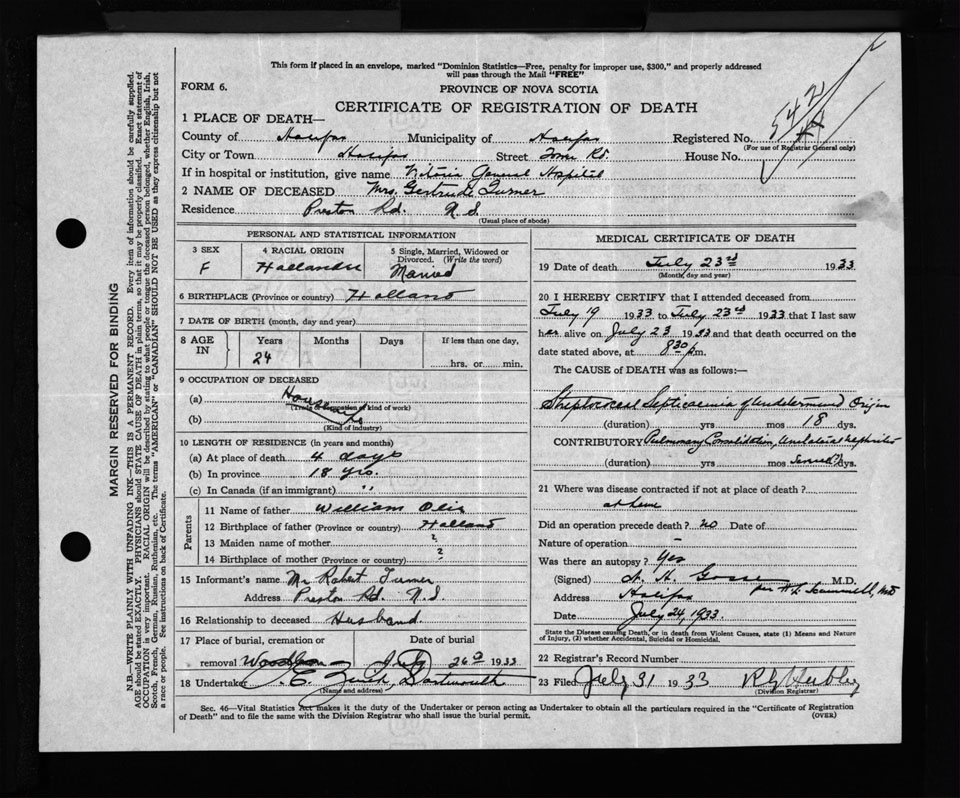 This form if placed in an envelope, marked "Dominion Statistics—Free, penalty for improper use, $300," and properly addressed
will pass through the Mail "FREE"
FORM 6.
PROVINCE OF NOVA SCOTIA
CERTIFICATE OF REGISTRATION OF DEATH
542
1 PLACE OF DEATH—
County of Halifax Municipality of Halifax Registered No.
(For use of Registrar General only)
City or Town Halifax Street Tower Rd. House No.
If in hospital or institution, give name Victoria General Hospital
2 NAME OF DECEASED Mrs. Gertrude Turner
Residence Preston Rd. N.S.
(Usual place of abode)
PERSONAL AND STATISTICAL INFORMATION
3 SEX 4 RACIAL ORIGIN 5 Single, Married, Widowed or
Divorced. (Write the word)
F Hollander Married
6 BIRTHPLACE (Province or country) Holland
7 DATE OF BIRTH (month, day and year)
8 AGE IN Years Months Days If less than one day,
24 hrs. or min.
9 OCCUPATION OF DECEASED
(a)
(Trade or occupation of kind of work)
(b)
(Kind of industry)
10 LENGTH OF RESIDENCE (in years and months)
(a) At place of death 4 days
(b) In province 18 yrs.
(c) In Canada (if an immigrant) "
Parents
11 Name of father William
12 Birthplace of father (Province or country) Holland
13 Maiden name of mother ?
14 Birthplace of mother (Province or country) ?
15 Informant's name Mr Robert Turner
Address Preston Rd. N.S.
16 Relationship to deceased Husband.
17 Place of burial, cremation or Date of burial
removal Woodlawn July 26 1933
18 Undertaker Dartmouth
(Name and address)
MEDICAL CERTIFICATE OF DEATH
19 Date of death July 23rd 1933
(Month, day and year)
20 I HEREBY CERTIFY that I attended deceased from
July 19 1933 to July 23rd 1933 that I last saw
her alive on July 23 1933 and that death occurred on the
date stated above, at 8 30 pm.
The CAUSE of DEATH was as follows:—
Streptococcal Septicaemia of Undetermined Origin
(duration) yrs mos 18 dys.
CONTRIBUTORY Pulmonary Consolidation, Nephritis
(duration) yrs mos dys.
21 Where was disease contracted if not at place of death?
at home
Did an operation precede death? no Date of
Nature of operation -
Was there an autopsy? Yes
(Signed) M.D.
Address Halifax
Date July 24, 1933.
State the Disease causing Death, or in death from Violent Causes, state (1) Means and Nature
of Injury, (2) whether Accidental, Suicidal or Homicidal.
22 Registrar's Record Number
23 Filed July 31 1933
(Division Registrar)
Sec. 46—Vital Statistics Act makes it the duty of the Undertaker or person acting as Undertaker to obtain all the particulars required in the "Certificate of Registration
of Death" and to file the same with the Division Registrar who shall issue the burial permit.
(OVER)
MARGIN RESERVED FOR BINDING
N.B.—WRITE PLAINLY WITH UNFADING INK—THIS IS A PERMANENT RECORD. Every item of information should be carefully supplied.
AGE should be stated EXACTLY. PHYSICIANS should STATE CAUSE OF DEATH in plain terms, so that it may be properly classified. Exact statement of
OCCUPATION is very important. RACIAL ORIGIN will be described by stating to what people or tongue the deceased person belonged, whether English, Irish,
Scotch, French, German, Russian, Ruthenian, etc. The terms "AMERICAN" or "CANADIAN" SHOULD NOT BE USED as they express citizenship but not
a race or people. See instructions on back of Certificate.